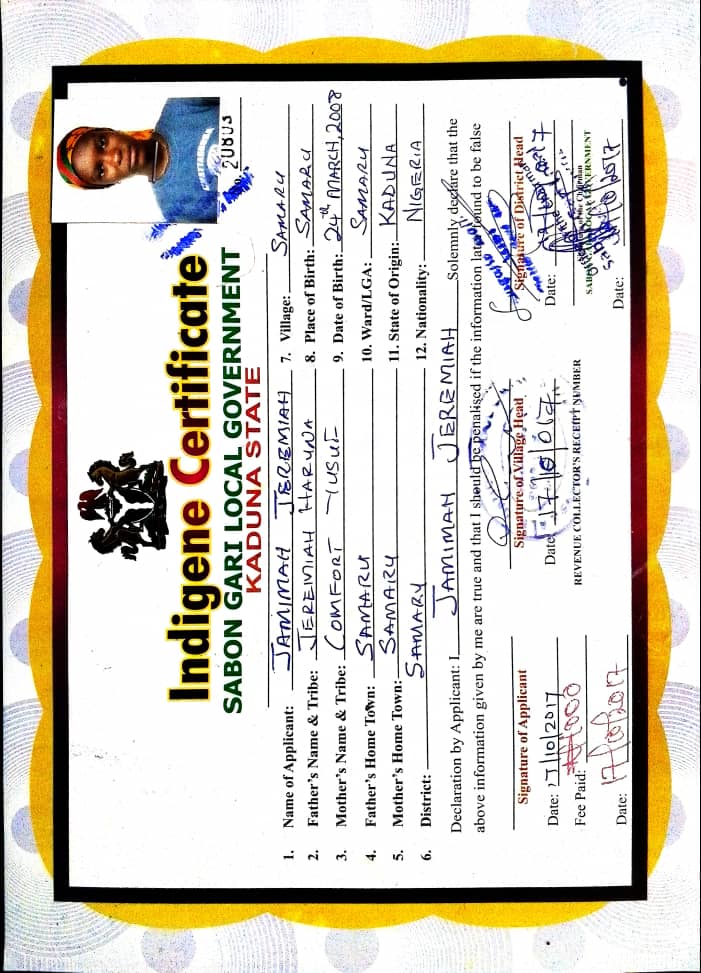 20803
Indigene Certificate
SABON GARI LOCAL GOVERNMENT
KADUNA STATE
1. Name of Applicant: JAMIMAH JEREMIAH 7. Village: SAMARU
2. Father's Name & Tribe: JEREMIAH HARUNA 8. Place of Birth: SAMARU
3. Mother's Name & Tribe: COMFORT YUSUF 9. Date of Birth: 24th MARCH, 2008
4. Father's Home Town: SAMARU 10. Ward/LGA: SAMARU
5. Mother's Home Town: SAMARU 11. State of Origin: KADUNA
6. District: SAMARU 12. Nationality: NIGERIA
Declaration by Applicant: I JAMIMAH JEREMIAH Solemnly declare that the
above information given by me are true and that I should be penalised if the information later found to be false
Signature of Applicant Signature of Village Head Signature of District Head
Date: 17/10/2017 Date: Date:
Fee Paid: ₦1000 REVENUE COLLECTOR'S RECEIPT NUMBER
SABON GARI LOCAL GOVERNMENT
Date: 17/10/2017 Date: